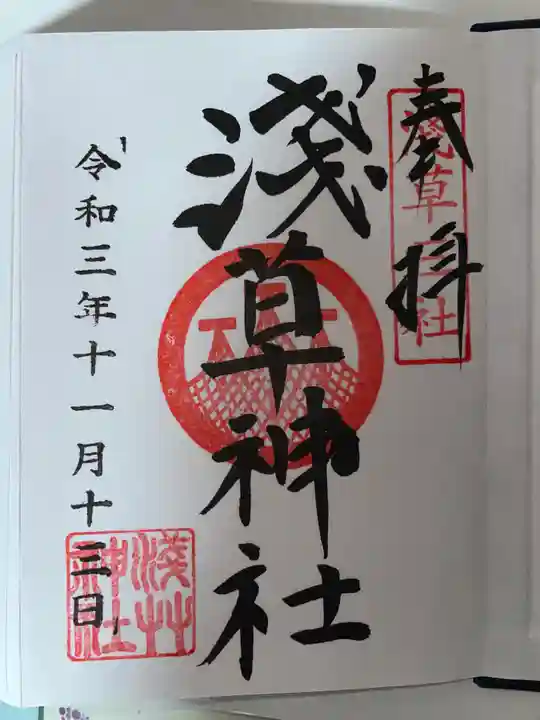 奉拝
淺草三社
淺草神社
令和三年十一月十三日
淺草
神社